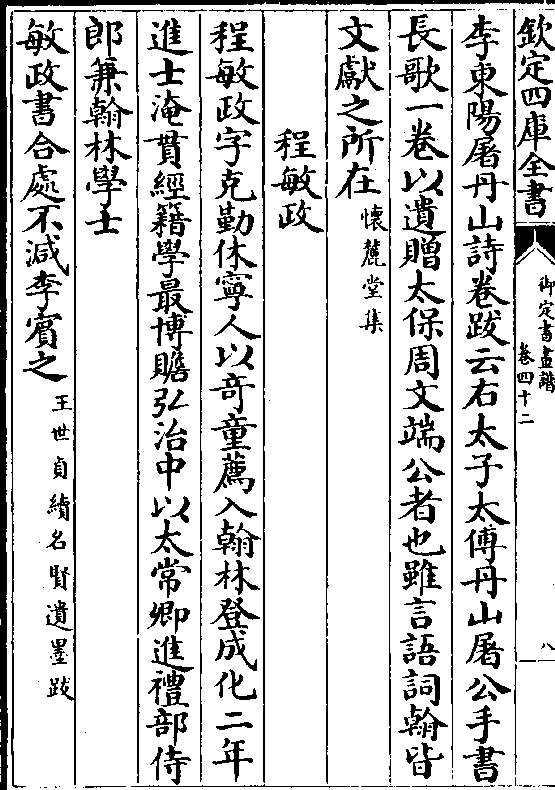 欽定四庫全書
御定書畫譜
卷四十二
八
李東陽屠丹山詩卷跋云右太子太傅丹山屠公手書
長歌一卷以遺贈太保周文端公者也雖言語詞翰皆
文獻之所在懷麓堂集
程敏政
程敏政字克勤休寧人以奇童薦入翰林登成化二年
進士淹貫經籍學最博贍弘治中以太常卿進禮部侍
郎兼翰林學士
敏政書合處不減李賓之王世貞續名賢遺墨跋